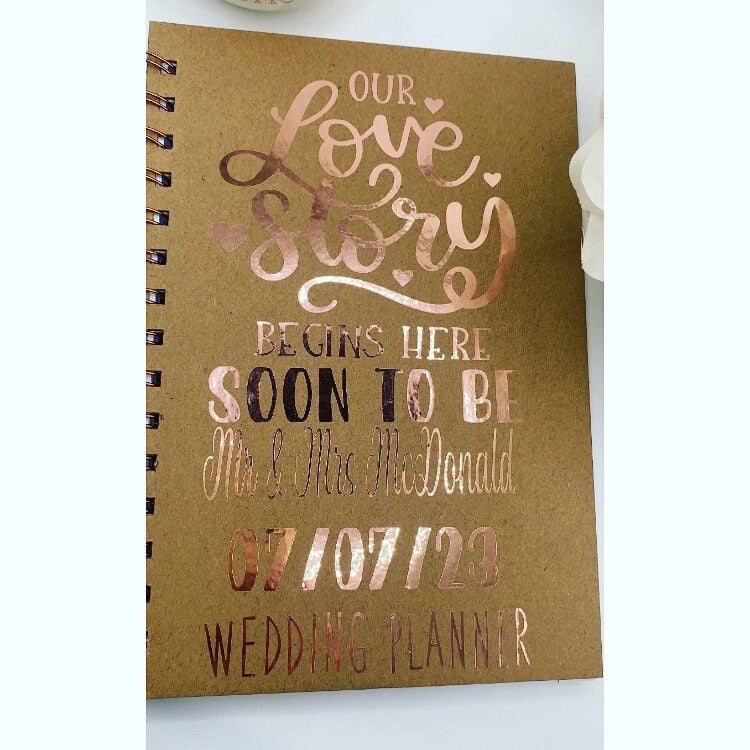 OUR
Love
Story
BEGINS HERE
SOON TO BE
Mr & Mrs McDonald
07/07/23
WEDDING PLANNER